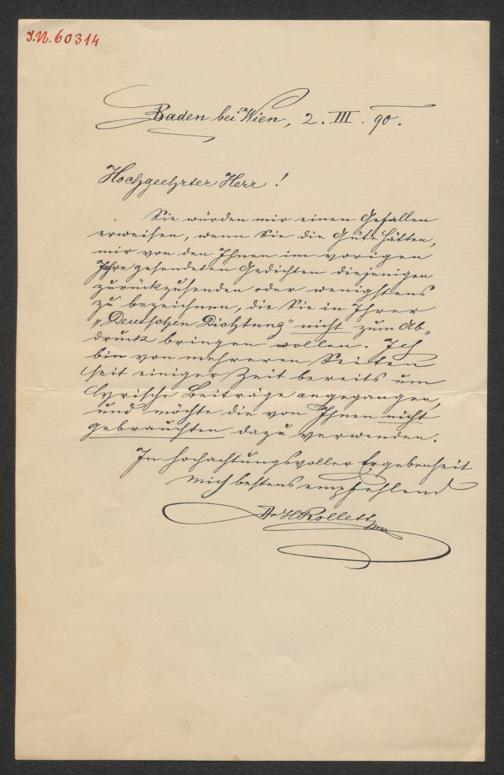 J.N. 60314
Baden bei Wien, 2. III. 90.
Hochgeehrter Herr!
Sie würden mir einen Gefallen
erweisen, wenn Sie die Güte hätten,
mir von den Ihnen im vorigen
Jahre gesendeten Gedichten diejenigen
zurückzusenden oder wenigstens
zu bezeichnen, die Sie in Ihrer
„Deutschen Dichtung" nicht zum Ab-
druck bringen wollen. Ich
bin von mehreren Seiten
seit einiger Zeit bereits um
lyrische Beiträge angegangen,
und möchte die von Ihnen nicht
gebrauchten dazu verwenden.
In hochachtungsvoller Ergebenheit
mich bestens empfehlend
Dr H Rollett